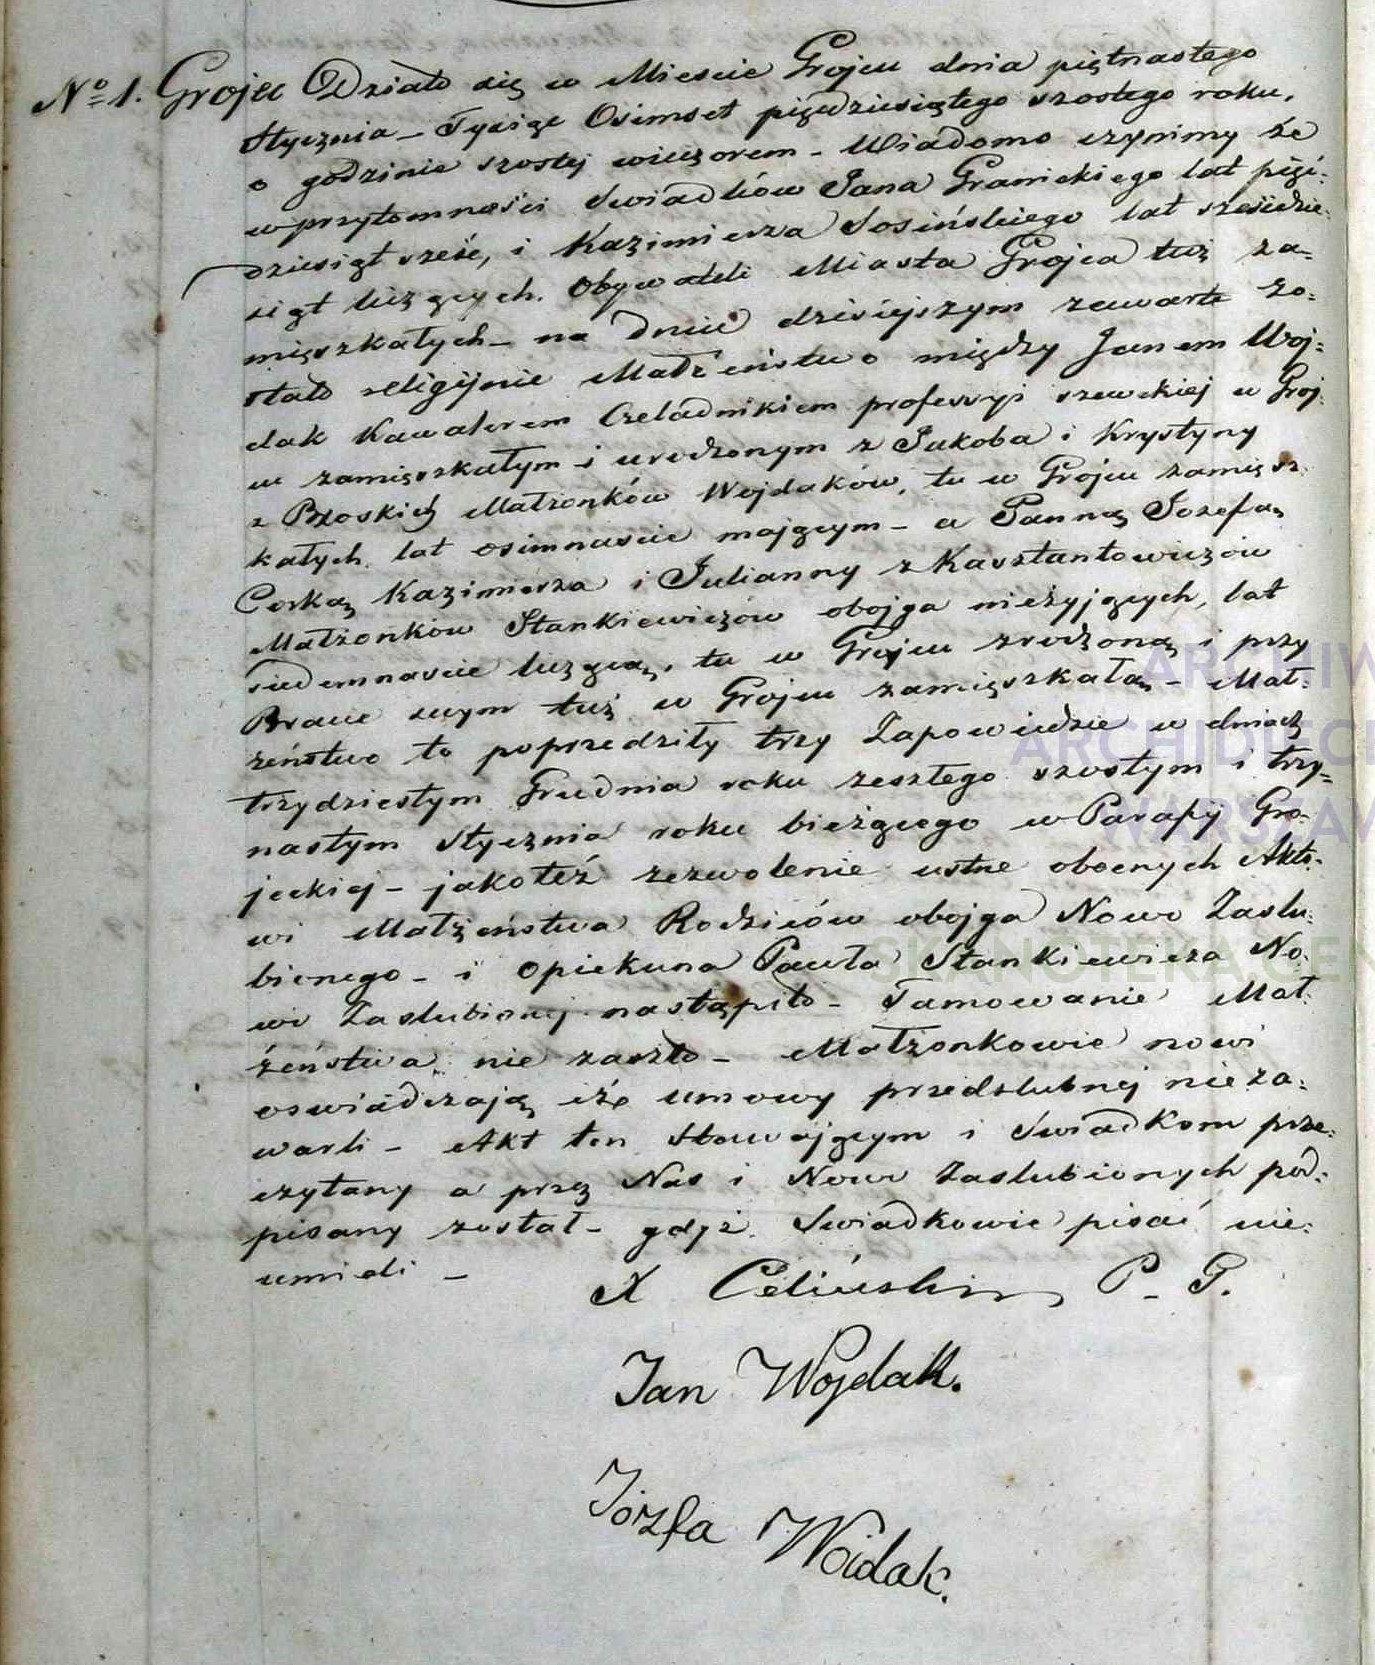 No 1. Grojec Działo się w Miescie Grojcu dnia piętnastego
Stycznia – Tysiąc Osimset pięćdziesiątego szostego roku,
o godzinie szostej wieczorem – Wiadomo czynimy że
w przytomności Swiadków Jana Granickiego lat pięć-
dziesiąt sześć, i Kazimierza Sosińskiego lat sześćdzie-
siąt liczących. Obywateli Miasta Grojca tuż za-
mięszkałych – na dniu dzisiejszym zawarte zo-
stało religijnie Małżeństwo między Janem Woj-
dak Kawalerem Czeladnikiem professyi szewckiej w Groj-
cu zamięszkałym i urodzonym z Jakoba i Krystyny
z Bzoskich Małżonków Wojdaków, tu w Grojcu zamięsz-
kałych, lat osimnascie mającym – a Panną Jozefą
Corką Kazimierza i Julianny z Kasztantowiczów
Małżonków Stankiewiczów obojga nieżyjących, lat
siedemnascie liczącą, tu w Grojcu zrodzoną i przy
Bracie swym tuż w Grojcu zamięszkałą – Mał-
żeństwo to poprzedziły trzy Zapowiedzie w dniach
trzydziestym Grudnia roku zeszłego szostym i trzy-
nastym Stycznia roku bieżącego w Parafij Gro-
jeckiej – jakoteż zezwolenie ustne obecnych Akto-
wi Małżeństwa Rodziców obojga Nowo Zaslu-
bionego – i opiekuna Pawła Stankiewicza No-
wo Zaslubionej nastąpiło – Tamowanie Mał-
żeństwa nie zaszło – Małżonkowie nowi
oswiadczają iże umowy przedslubnej nieza-
warli – Akt ten Stawającym i Świadkom prze-
czytany a przez Nas i Nowo Zaslubionych pod-
pisany został – gdyż Swiadkowie pisać nie-
umieli –
X Celiński P. G.
Jan Wojdak.
Józfa Woidak.
ARCHIW
ARCHIDIECE
WARSZAW
SKANOTEKA.GEN